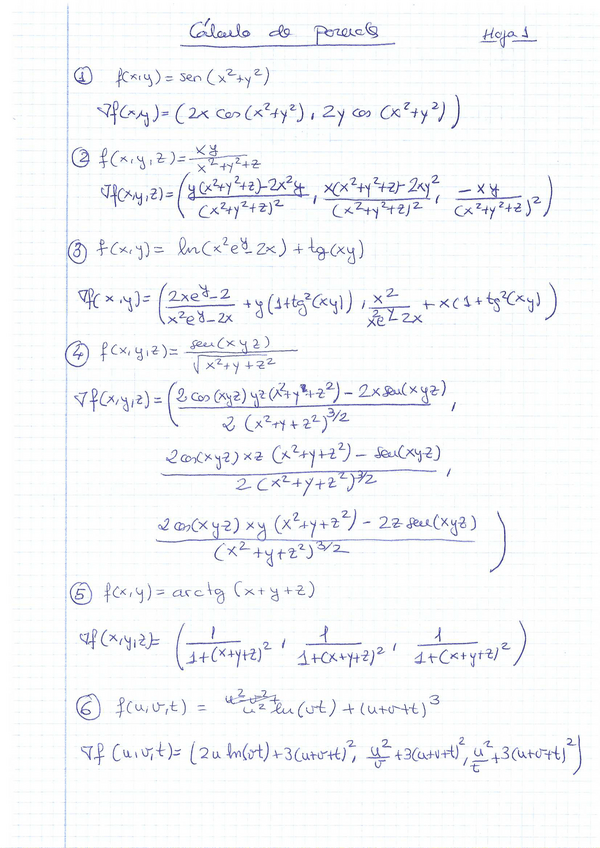 Cálculo de parciales
Hoja 1
① f(x,y) = sen(x²+y²)
∇f(x,y) = (2x cos(x²+y²), 2y cos(x²+y²))
② f(x,y,z) = xy / x²+y²+z
∇f(x,y,z) = (y(x²+y²+z)-2x²y / (x²+y²+z)², x(x²+y²+z)-2xy² / (x²+y²+z)², -xy / (x²+y²+z)²)
③ f(x,y) = ln(x²e^y-2x) + tg(xy)
∇f(x,y) = (2xe^y-2 / x²e^y-2x + y(1+tg²(xy)), x² / x²e^y-2x + x(1+tg²(xy)))
④ f(x,y,z) = sen(xyz) / √x²+y+z²
∇f(x,y,z) = (2cos(xyz)yz(x²+y+z²) - 2xsen(xyz) / 2(x²+y+z²)^3/2,
2cos(xyz)xz(x²+y+z²) - sen(xyz) / 2(x²+y+z²)^3/2,
2cos(xyz)xy(x²+y+z²) - 2z sen(xyz) / (x²+y+z²)^3/2)
⑤ f(x,y) = arctg(x+y+z)
∇f(x,y,z) = (1 / 1+(x+y+z)², 1 / 1+(x+y+z)², 1 / 1+(x+y+z)²)
⑥ f(u,v,t) = u² ln(vt) + (u+v+t)³
∇f(u,v,t) = (2u ln(vt)+3(u+v+t)², u²/v +3(u+v+t)², u²/t +3(u+v+t)²)